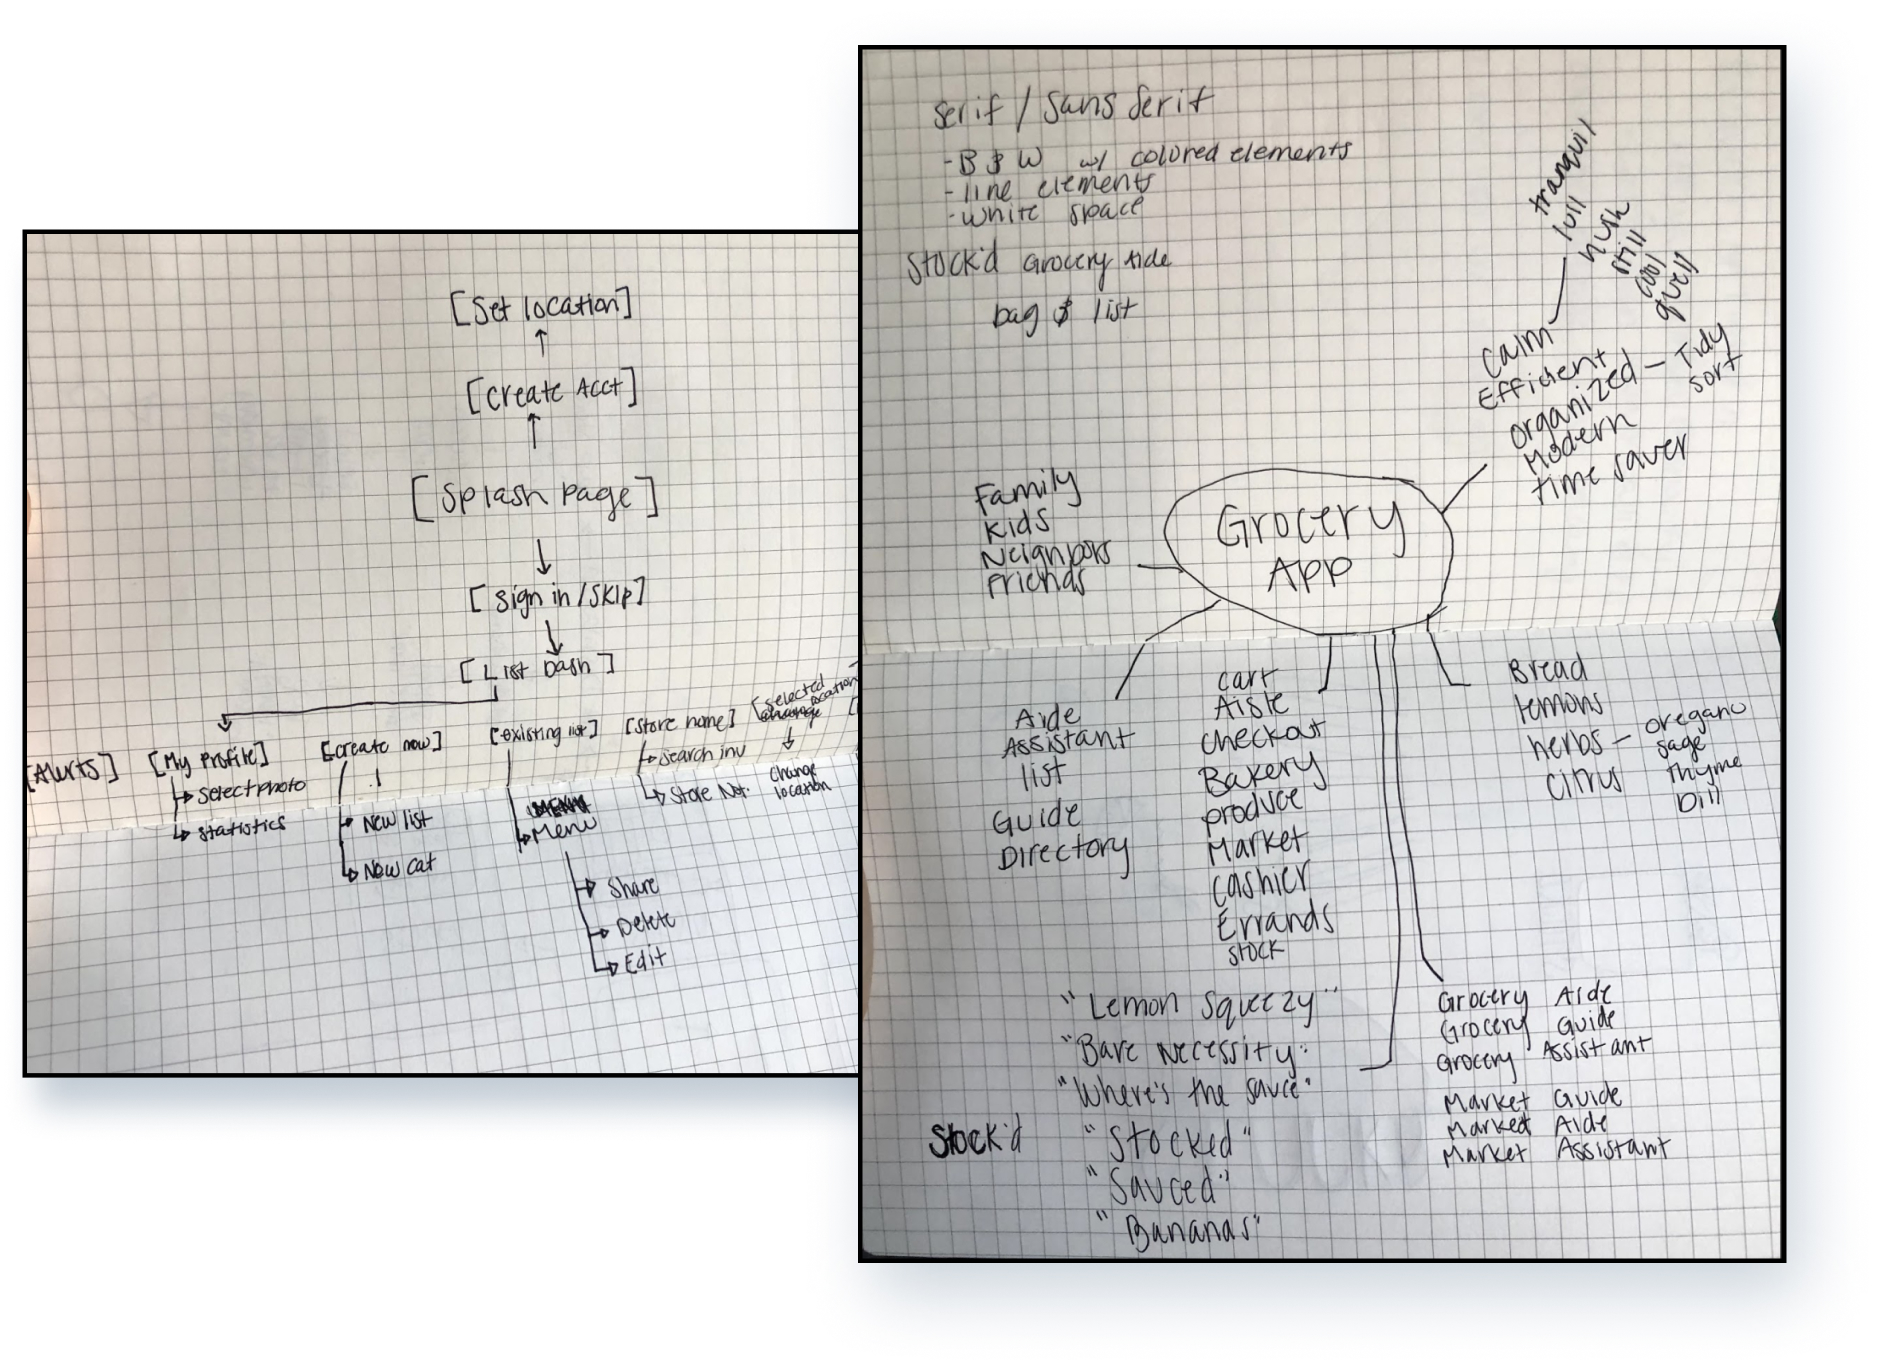 [Set location]
[Create Acct]
[Splash page]
[Sign in / Skip]
[List Dash]
[Alerts]
[My Profile]
Select photo
Statistics
[Create new]
New list
New cat
[existing list]
Menu
Share
Delete
Edit
[Store name]
Search inv
Store Not.
[Selected
location
Change
location
Serif / Sans Serif
- B & W w/ colored elements
- line elements
- white space
Stock'd Grocery Aide
bag & list
tranquil
lull
hush
still
cool
quell
Calm
Efficient
organized - Tidy
sort
Modern
time saver
Family
Kids
Neighbors
Friends
Grocery
App
Aide
Assistant
list
Guide
Directory
cart
Aisle
checkout
Bakery
produce
Market
cashier
Errands
stock
Bread
lemons
herbs - oregano
sage
Thyme
Dill
citrus
"Lemon Squeezy"
"Bare Necessity"
"Where's the sauce"
Stock'd
"Stocked"
"Sauced"
"Bananas"
Grocery Aide
Grocery Guide
Grocery Assistant
Market Guide
Market Aide
Market Assistant